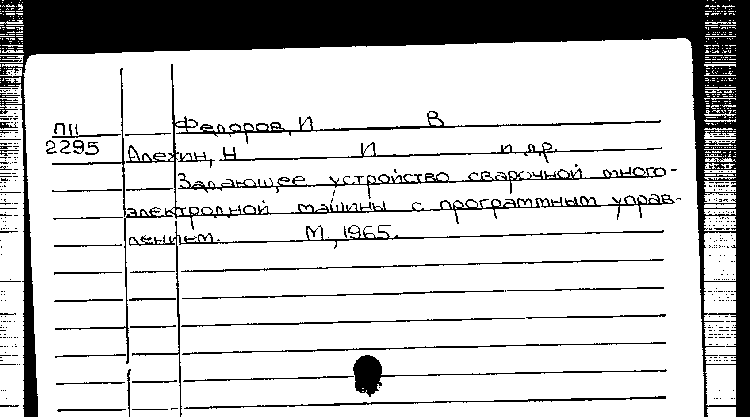 Федоров, И В
ПН
2295
Алехин, Н И и др.
Задающее устройство сварочной много-
электродной машины с программным управ-
лением. М, 1965.